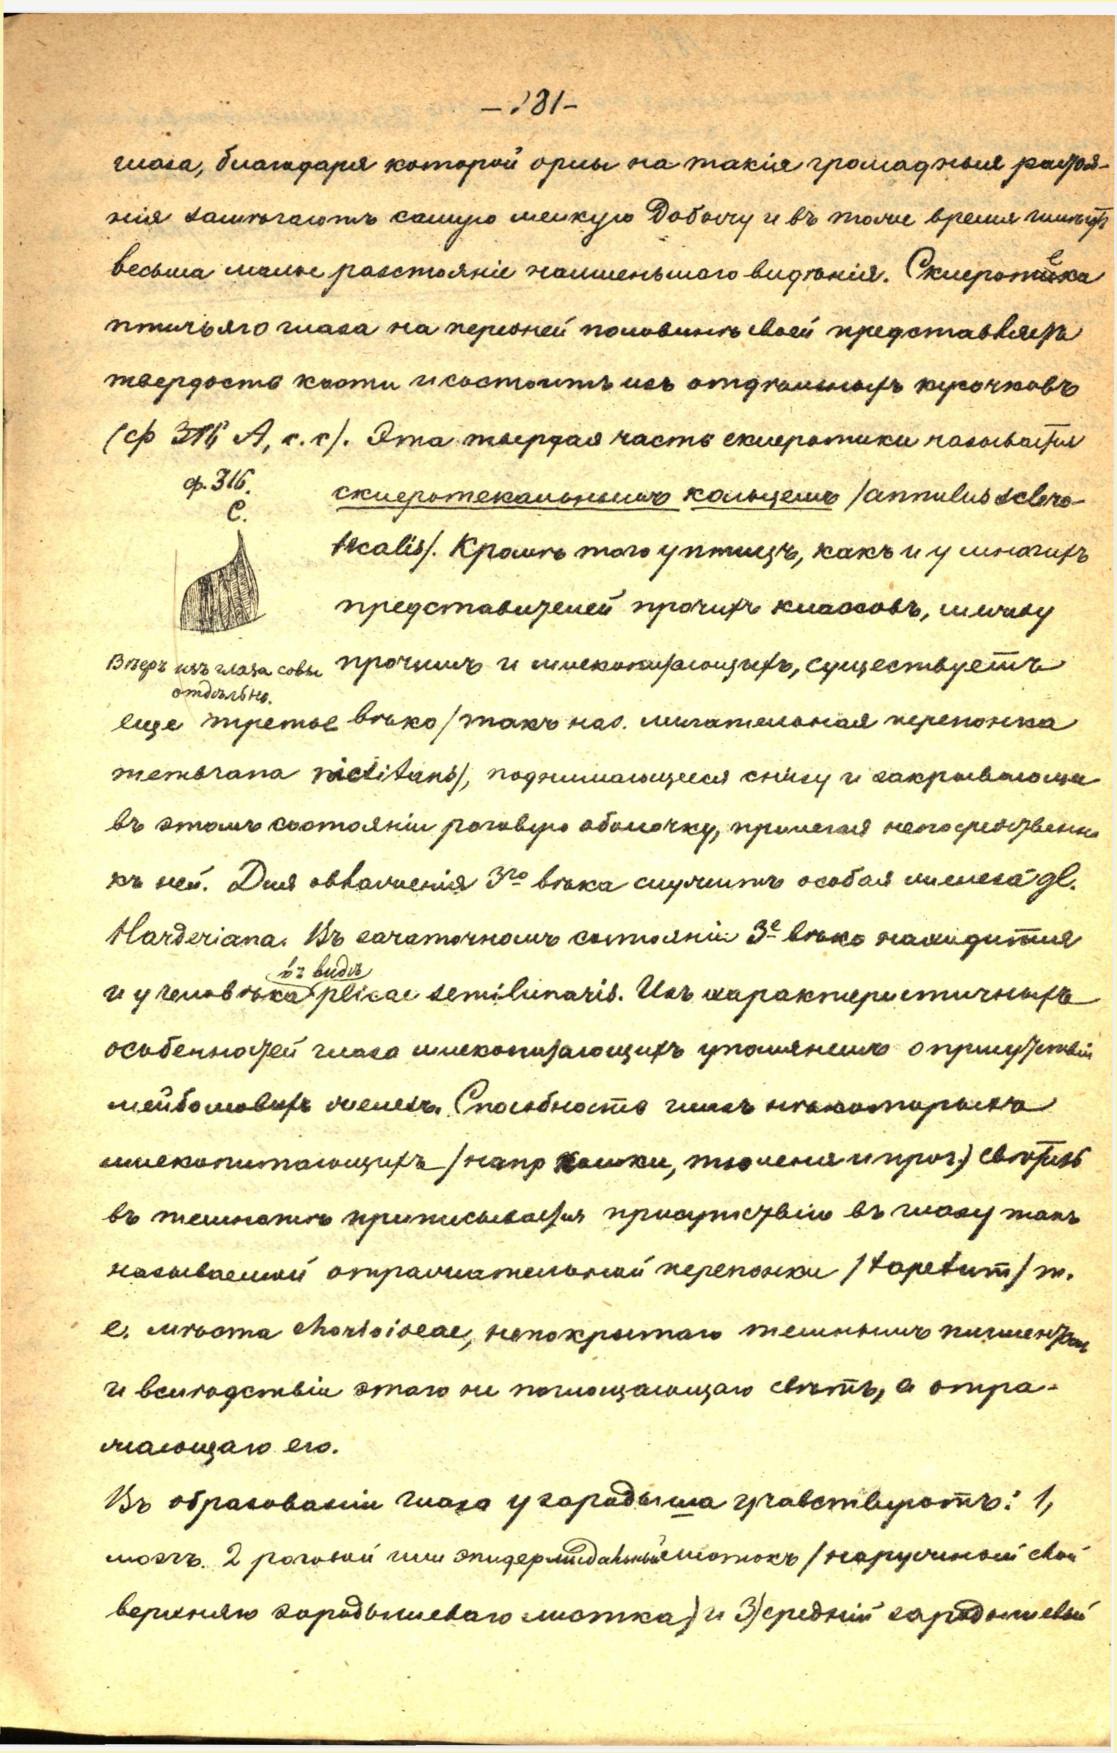 — 281 —
глаза, благодаря которой орлы на такія громадныя растоя-
нія замѣчаютъ самую мелкую добычу и въ тоже время имѣютъ
весьма малое разстояніе наименьшаго видѣнія. Склеротека
птичьяго глаза на передней половинѣ своей представляетъ
твердость кости и состоитъ изъ отдѣльныхъ кусочковъ
(ф 315 А, с. с). Эта твердая часть склеротики называется
ф. 316.
С.
склеротекальнымъ кольцемъ /annulus sclero-
tecalis/. Кромѣ того у птицъ, какъ и у многихъ
представителей прочихъ классовъ, между
Вѣеръ изъ глаза совы
отдѣльно.
прочимъ и млекопитающихъ, существуетъ
еще третье вѣко /такъ наз. мигательная перепонка
membrana nictitans/, поднимающееся снизу и закрывающее
въ этомъ состояніи роговую оболочку, прилегая непосредственно
къ ней. Для овлаженія 3го вѣка служитъ особая железа gl.
Harderiana. Въ зачаточномъ состояніи 3е вѣко находится
и у человѣка въ видѣ plicae semilunaris. Изъ характеристичныхъ
особенностей глаза млекопитающихъ упомянемъ о присутствіи
мейбомовыхъ железъ. Способность глазъ нѣкоторыхъ
млекопитающихъ /напр кошки, тюленя и проч.) свѣтить
въ темнотѣ приписывается присутствію въ глазу такъ
называемой отражательной перепонки /tapetum/ т.
е. мѣста chorioideae, непокрытаго темнымъ пигментомъ
и вслѣдствіи этого не поглощающаго свѣтъ, а отра-
жающаго его.
Въ образованіи глаза у зародыша участвуютъ: 1,
мозгъ. 2 роговой или эпидермоидальный листокъ /наружный слой
верхняго зародышеваго листка) и 3) средній зародышевый